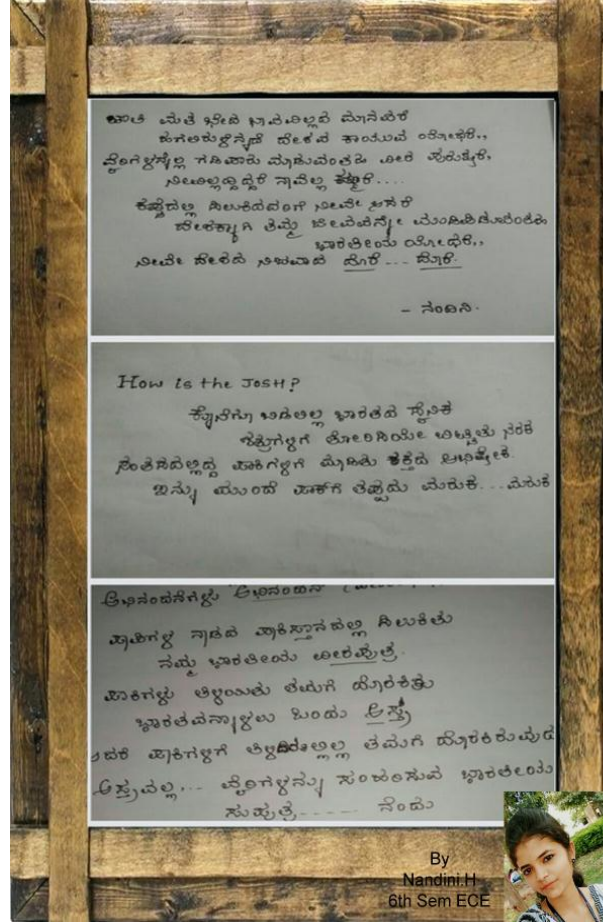 ಜಾತಿ ಮತ ಭೇದ ಭಾವವಿಲ್ಲದೆ ಮಾನವರೆ
ಹಗಲಿರುಳೆನ್ನದೆ ದೇಶವ ಕಾಯುವ ಯೋಧರೆ,,
ವೈರಿಗಳನ್ನೆಲ್ಲ ಗಡಿಪಾರು ಮಾಡುವಂತಹ ವೀರ ಪುರುಷರೆ,
ನೀವಿಲ್ಲದಿದ್ದರೆ ನಾವೆಲ್ಲ ....
ಕಷ್ಟದಲ್ಲಿ ಸಿಲುಕಿದವರಿಗೆ ನೀವೇ ಆಸರೆ
ದೇಶಕ್ಕಾಗಿ ತಮ್ಮ ಜೀವವನ್ನೇ ಮುಡಿಪಿಡುವಂತಹ
ಭಾರತೀಯ ಯೋಧರೆ,,
ನೀವೇ ದೇಶದ ನಿಜವಾದ ದೊರೆ... ದೊರೆ.
- ನಂದಿನಿ.
How is the JOSH?
ಕೊನೆಗೂ ಬಿಡಲಿಲ್ಲ ಭಾರತದ ಸೈನಿಕ
ಶತ್ರುಗಳಿಗೆ ತೋರಿಸಿಯೇ ಬಿಟ್ಟಿತು ನರಕ
ಸಂತಸದಲ್ಲಿದ್ದ ಪಾಕಿಗಳಿಗೆ ಮಾಡಿತು ರಕ್ತದ ಅಭಿಷೇಕ
ಇನ್ನು ಮುಂದೆ ಪಾಕ್‌ಗೆ ತಪ್ಪದು ಮರುಕ...ಮರುಕ
ಅಭಿನಂದನೆಗಳು ಅಭಿನಂದನ್
ಪಾಪಿಗಳ ನಾಡದ ಪಾಕಿಸ್ತಾನದಲ್ಲಿ ಸಿಲುಕಿತು
ನಮ್ಮ ಭಾರತೀಯ ವೀರಪುತ್ರ.
ಪಾಕಿಗಳು ತಿಳಿಯಿತು ತಮಗೆ ದೊರಕಿತು
ಭಾರತವನ್ನಾಳಲು ಒಂದು ಅಸ್ತ್ರ
ಆದರೆ ಪಾಕಿಗಳಿಗೆ ತಿಳಿದಿರಲಿಲ್ಲ ತಮಗೆ ದೊರಕಿರುವುದು
ಅಸ್ತ್ರವಲ್ಲ,... ವೈರಿಗಳನ್ನು ಸಂಹರಿಸುವ ಭಾರತೀಯ
ಸುಪುತ್ರ...... ನೆಂದು
By
Nandini.H
6th Sem ECE